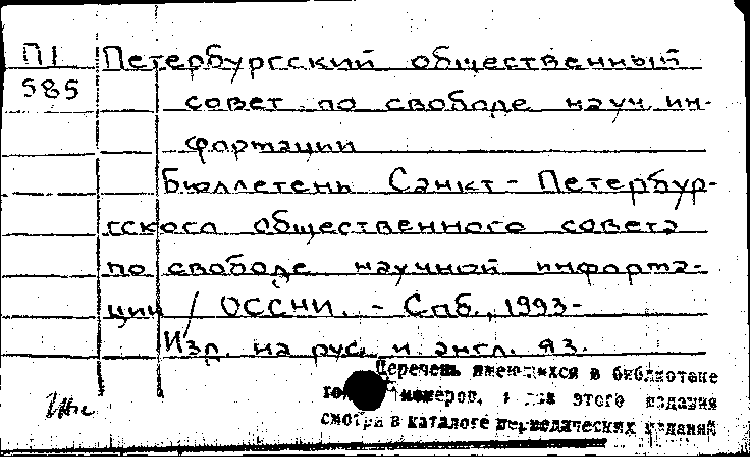 П1 Петербургский общественный
585 совет по свободе науч. ин-
формации
Бюллетень Санкт-Петербур-
гского общественного совета
по свободе научной информа-
ции / ОССНИ. - Спб., 1993-
Изд. на рус. и англ. яз.
Перечень имеющихся в библиотеке
номеров, этого издания
смотри в каталоге периодических изданий